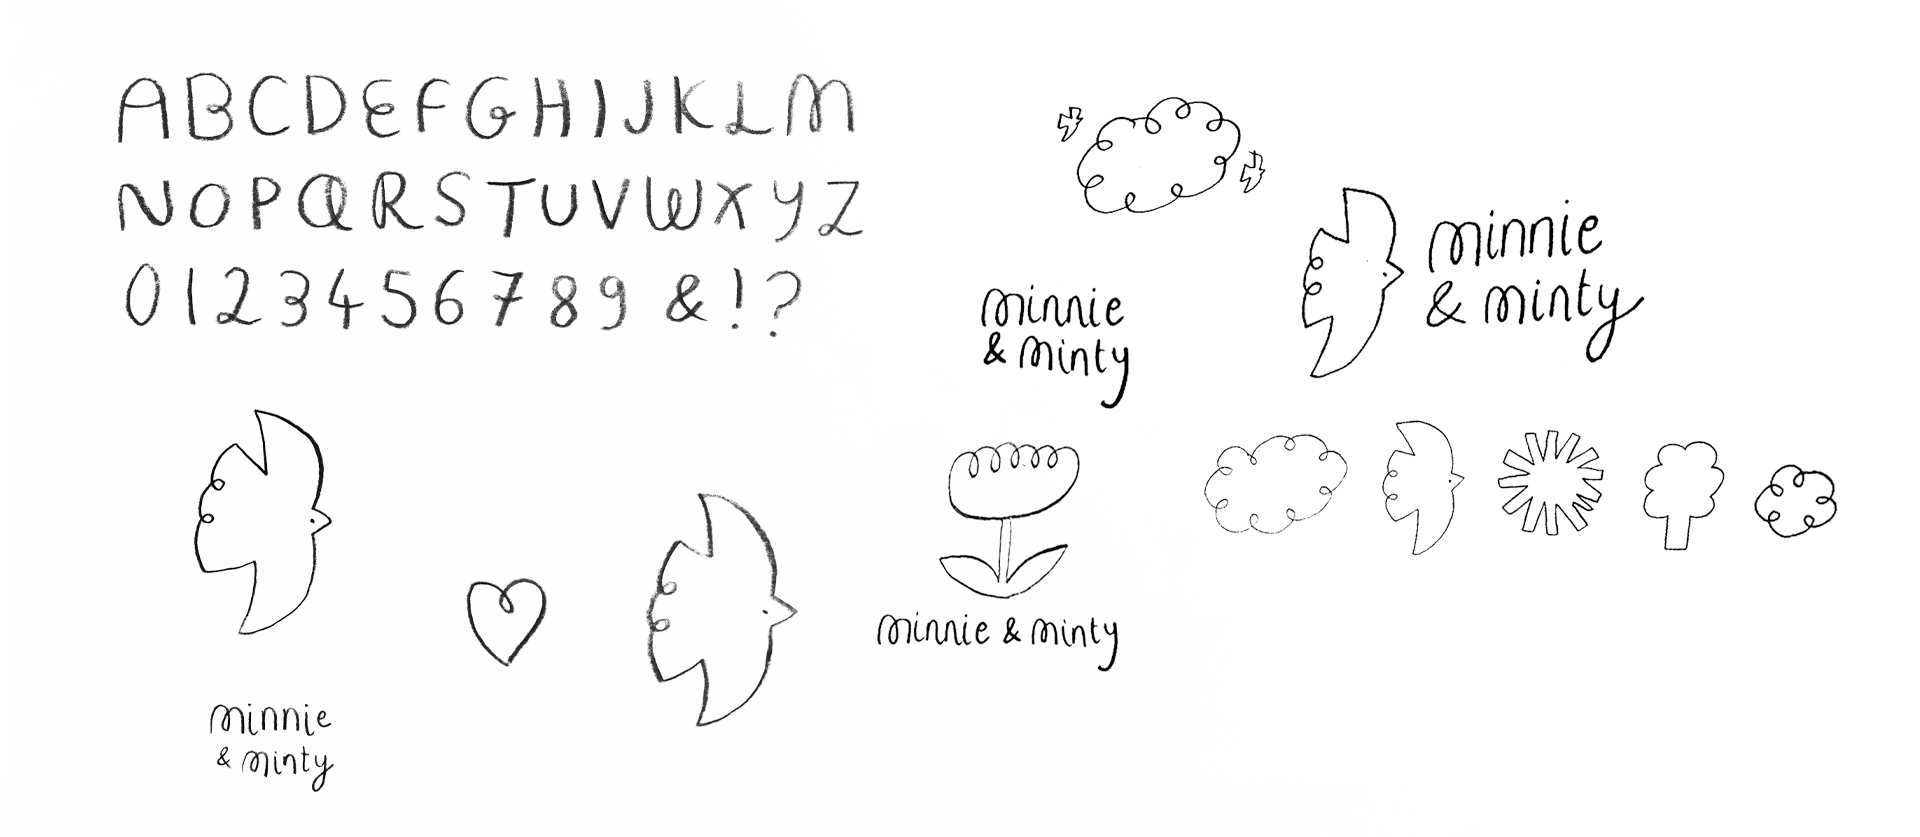 ABCDEFGHIJKLM
NOPQRSTUVWXYZ
0123456789 &!?
minnie
& minty
minnie
& minty
minnie & minty
minnie
& minty